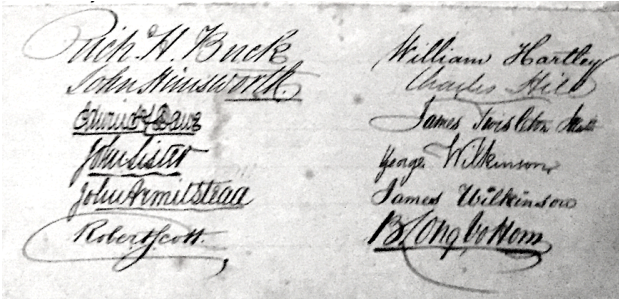 Rich. H. Buck
John Hinsworth.
John Lister
John Armitstead
Robert Scott.
William Hartley
Charles Hill
James Twisleton
George Wilkinson
James Wilkinson
B. Longbottom